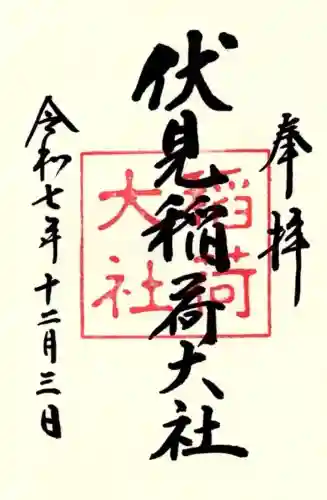 奉拝
伏見稲荷大社
稲荷
大社
令和七年十二月三日